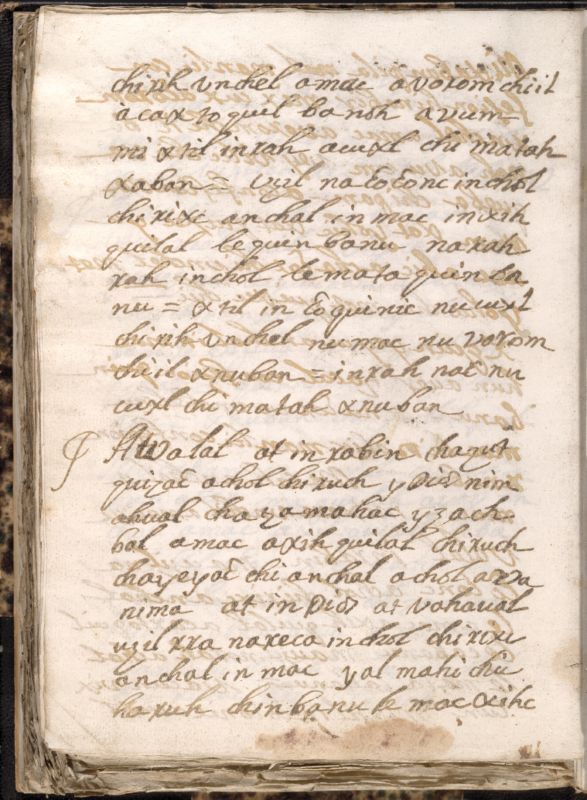 chirih vnchel amac avorom chiil
acaxtoquil banoh avum
mixtil inrah auxl chi matah
xaban = vzil natotonc inchol
chirixc anchal in mac inxih
quilal lequin banu naxah
rah inchol le mata quin ba
nu = xtil in toquinic nuuxl
chirih vnchel numac nu vorom
chiil xnuban = inrah nac nu
uxl chi matah xnuban
Awalal at in rabin chayut
quizac achol chiruch y Dios nim
ahual chayamahac yzach
bal amac axihquilal chiruch
chayeyac chi anchal achol ara
nima at in Dios at vahaual
vzil xra naxeca inchol chirixc
anchal in mac yal mahi chic
haruh chinbanu le mac xihc